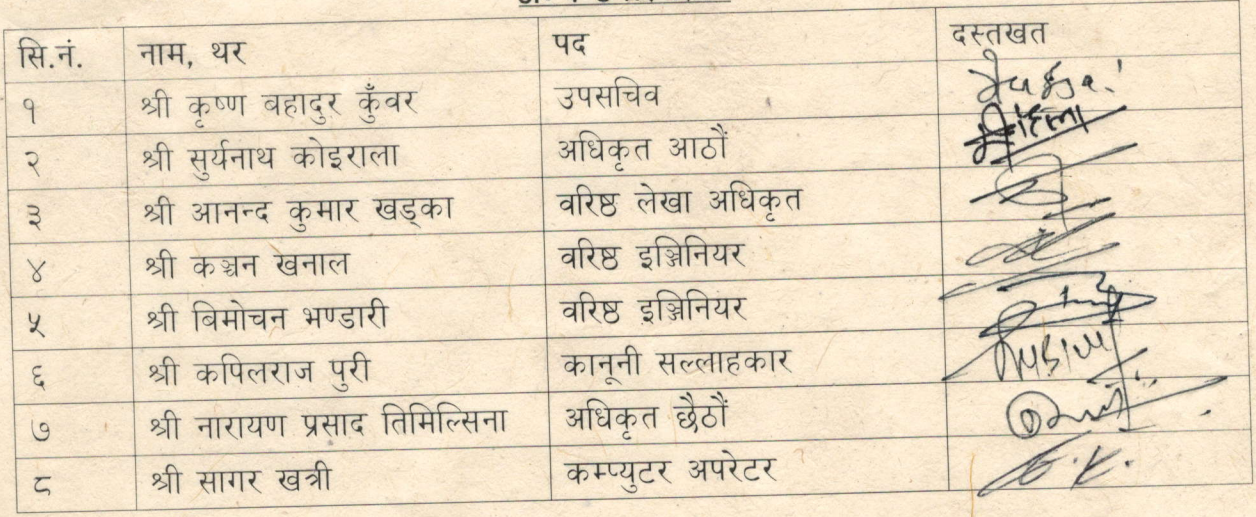 सि.नं. नाम, थर पद दस्तखत
१ श्री कृष्ण बहादुर कुँवर उपसचिव
२ श्री सुर्यनाथ कोइराला अधिकृत आठौं
३ श्री आनन्द कुमार खड्का वरिष्ठ लेखा अधिकृत
४ श्री कञ्चन खनाल वरिष्ठ इञ्जिनियर
५ श्री बिमोचन भण्डारी वरिष्ठ इञ्जिनियर
६ श्री कपिलराज पुरी कानूनी सल्लाहकार
७ श्री नारायण प्रसाद तिमिल्सिना अधिकृत छैठौं
८ श्री सागर खत्री कम्प्युटर अपरेटर